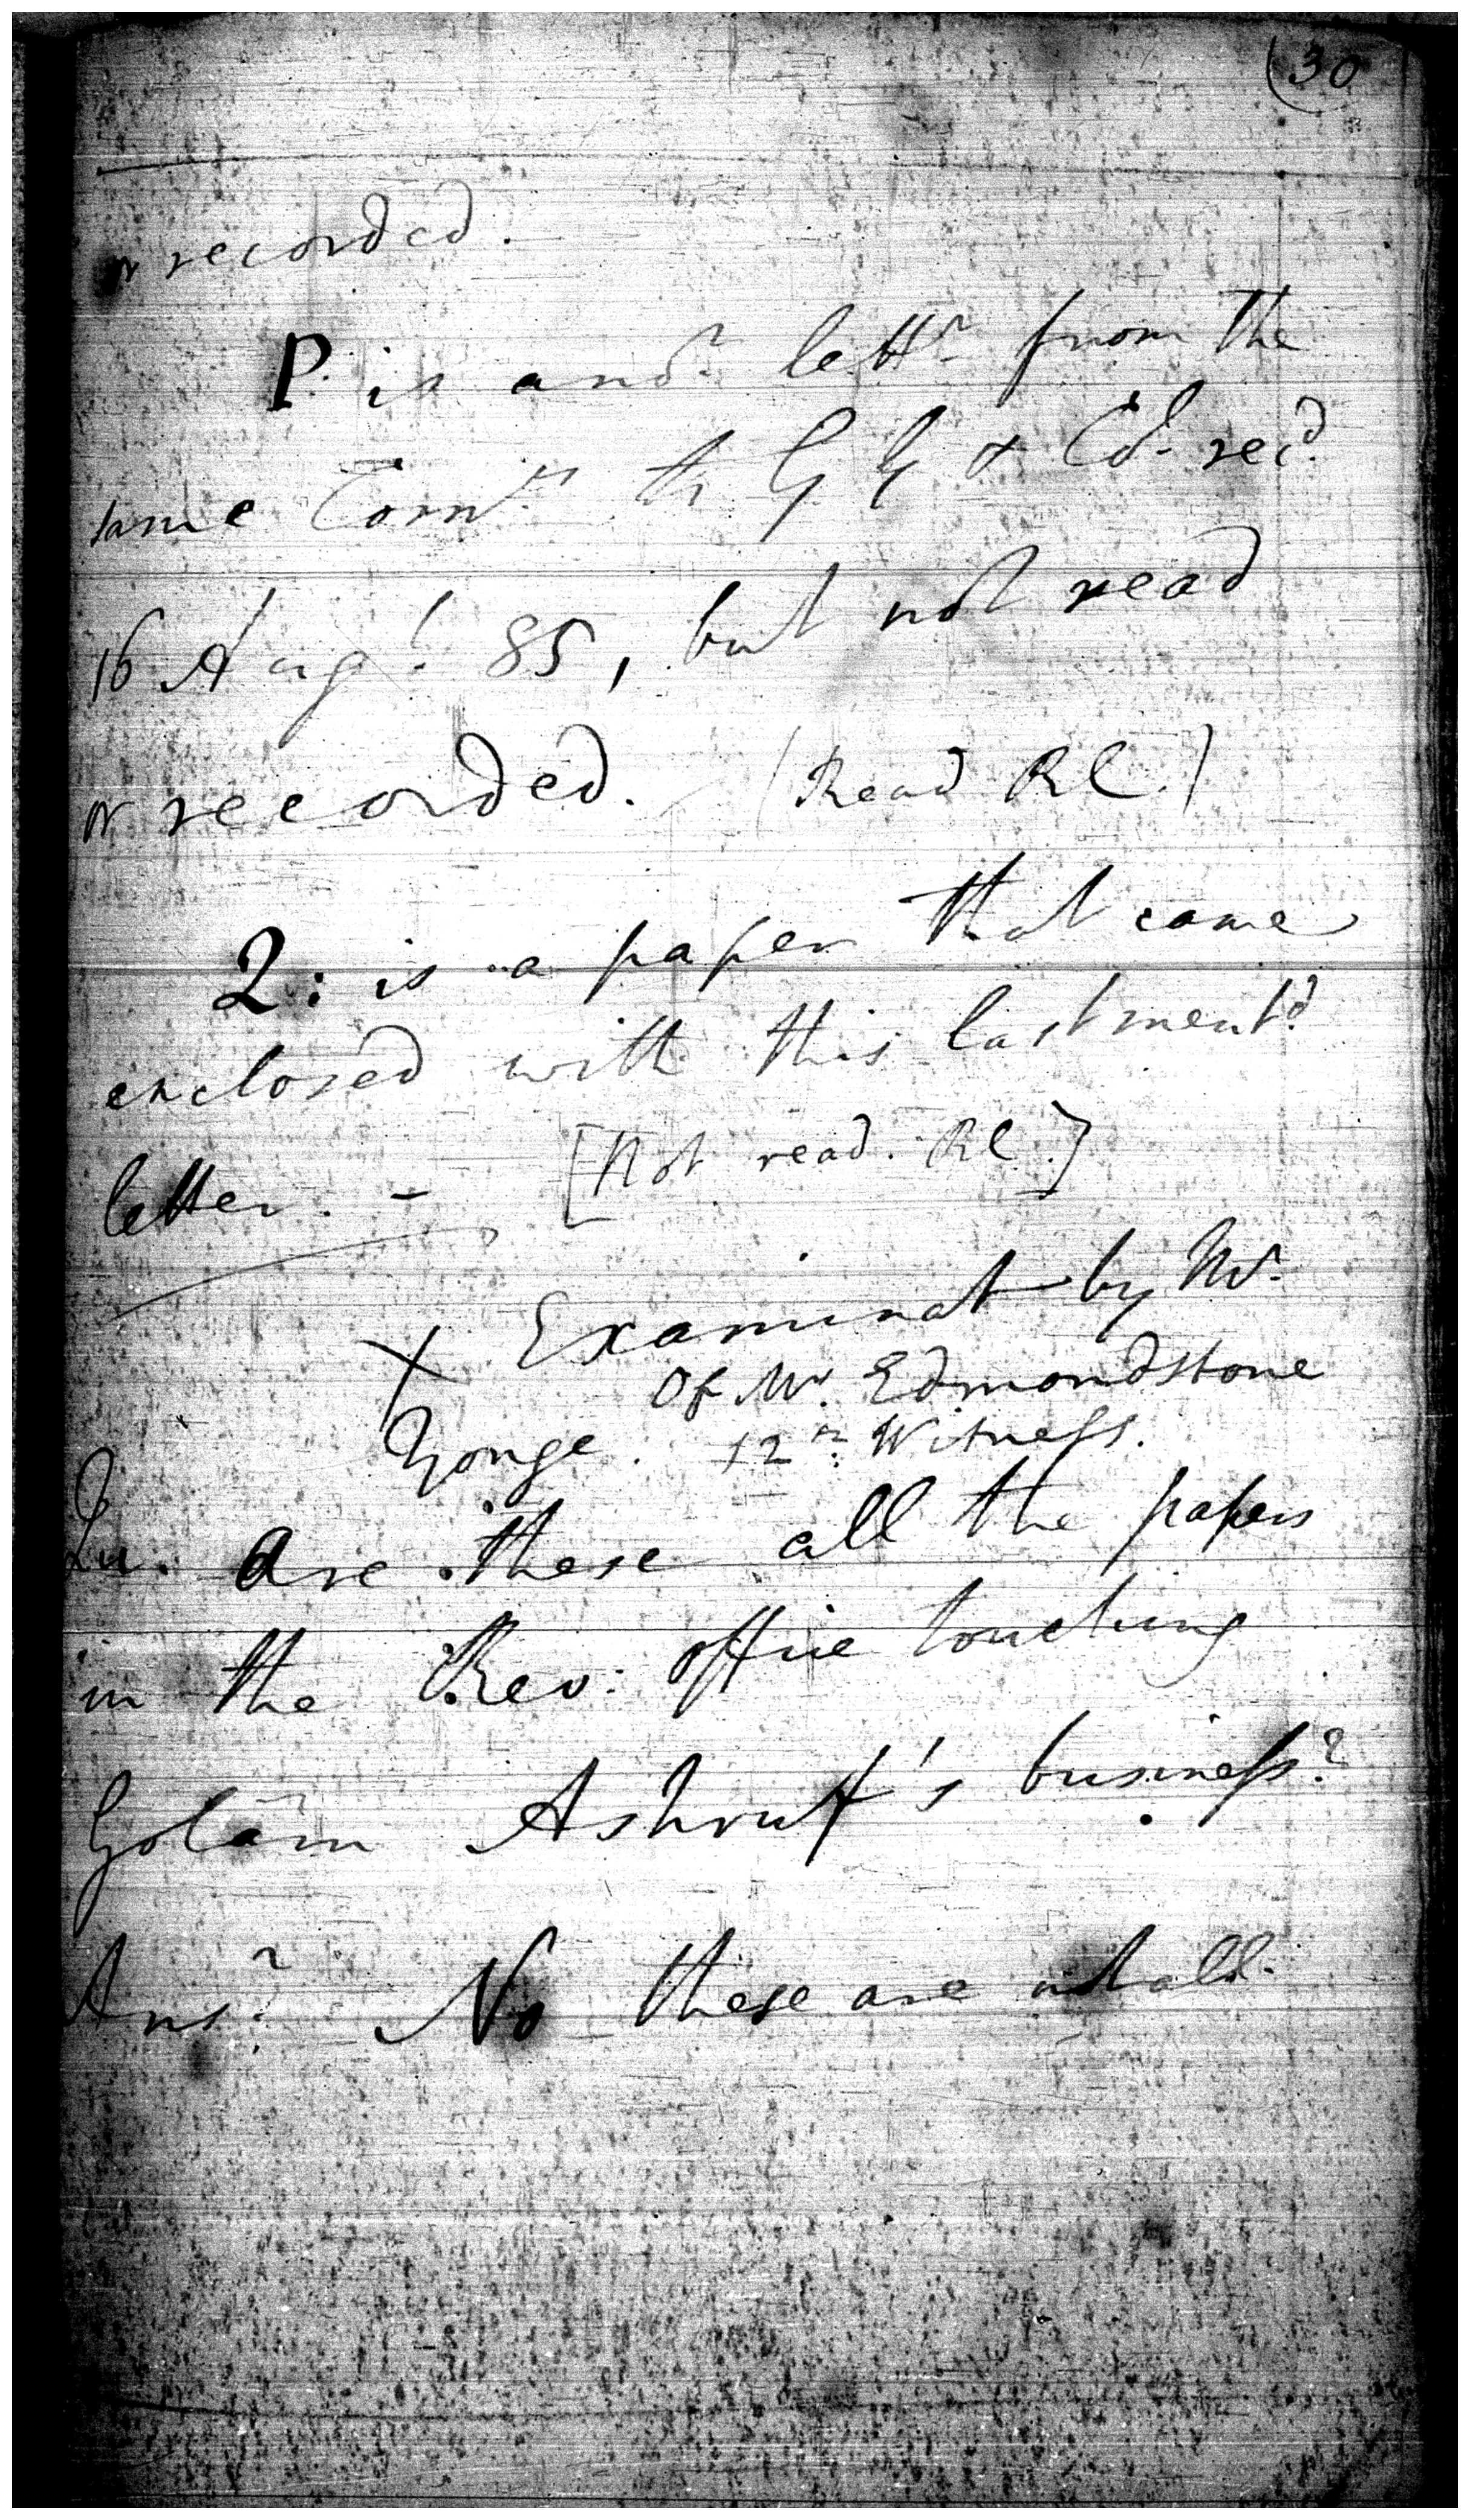 (30
or recorded.
P. is anor. lettr. from the
same Comrs. to G G & Col. recd.
16 Augt. 85, but not read
or recorded. (Read RC.)
Q: is a paper that came
enclosed with this last mentd.
letter. - [Not read. RC.]
X Examinat by Mr.
Of Mr. Edmondstone
Yonge. 12th Witness.
Qu. Are these all the papers
in the Rev: office touching
Golâm Ashruff's business?
Ansr. No these are not all.